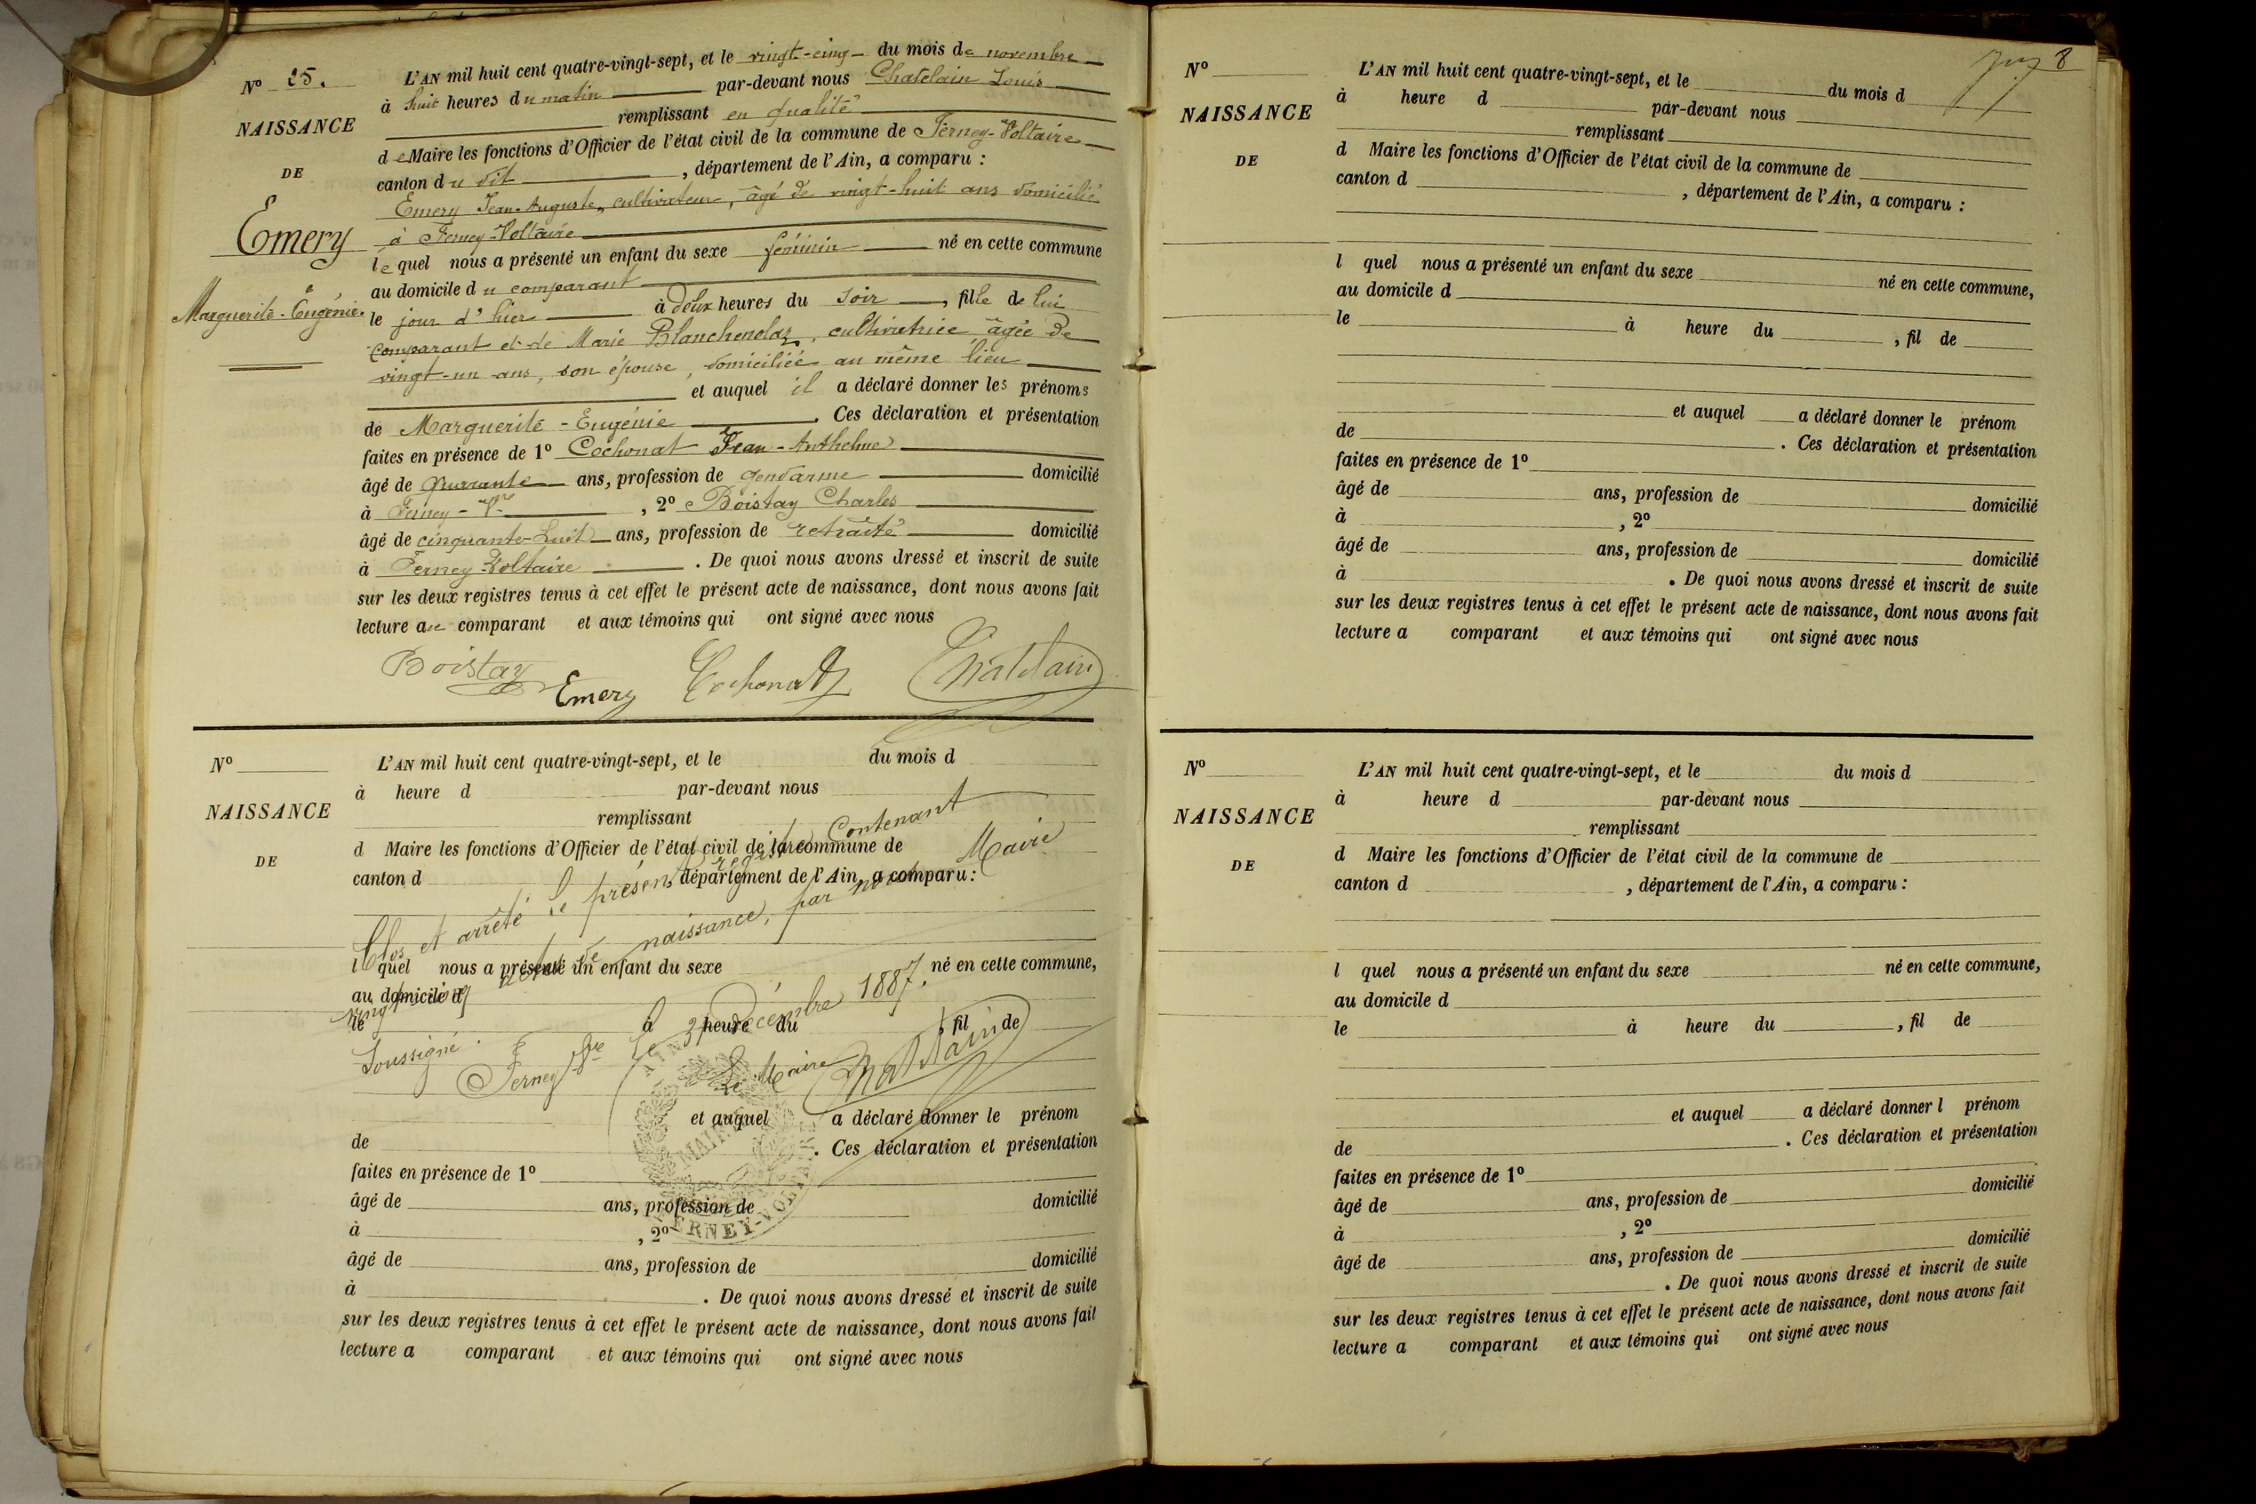 Nº 25.
NAISSANCE
DE
Emery
Marguerite-Eugénie.
L'AN mil huit cent quatre-vingt-sept, et le vingt-cinq du mois de novembre
à huit heures du matin par-devant nous Chatelain Louis
remplissant en qualité
de Maire les fonctions d'Officier de l'état civil de la commune de Ferney-Voltaire
canton du dit , département de l'Ain, a comparu :
Emery Jean-Auguste, cultivateur, âgé de vingt-huit ans domicilié
à Ferney-Voltaire
lequel nous a présenté un enfant du sexe féminin né en cette commune
au domicile du comparant
le jour d'hier à deux heures du soir , fille de lui
comparant et de Marie Blanchenelaz, cultivatrice âgée de
vingt-un ans, son épouse, domiciliée au même lieu
et auquel il a déclaré donner les prénoms
de Marguerite-Eugénie . Ces déclaration et présentation
faites en présence de 1º Cochonat Jean-Anthelme
âgé de quarante ans, profession de gendarme domicilié
à Ferney-Vre , 2º Boistay Charles
âgé de cinquante-huit ans, profession de retraité domicilié
à Ferney-Voltaire . De quoi nous avons dressé et inscrit de suite
sur les deux registres tenus à cet effet le présent acte de naissance, dont nous avons fait
lecture au comparant et aux témoins qui ont signé avec nous
Boistay Emery Cochonat Chatelain
Nº
NAISSANCE
DE
L'AN mil huit cent quatre-vingt-sept, et le du mois d
à heure d par-devant nous
remplissant
d Maire les fonctions d'Officier de l'état civil de la commune de
canton d département de l'Ain, a comparu :
l quel nous a présenté un enfant du sexe né en cette commune,
au domicile d
le à heure du , fil de
et auquel a déclaré donner le prénom
de . Ces déclaration et présentation
faites en présence de 1º
âgé de ans, profession de domicilié
à , 2º
âgé de ans, profession de domicilié
à . De quoi nous avons dressé et inscrit de suite
sur les deux registres tenus à cet effet le présent acte de naissance, dont nous avons fait
lecture a comparant et aux témoins qui ont signé avec nous
Clos et arrêté le présent registre contenant
vingt-cinq actes de naissance, par nous Maire
soussigné.
Ferney Vre le 31 Décembre 1887.
Le Maire
Chatelain
MAIRIE
FERNEY-VOLTAIRE
8
Nº
NAISSANCE
DE
L'AN mil huit cent quatre-vingt-sept, et le du mois d
à heure d par-devant nous
remplissant
d Maire les fonctions d'Officier de l'état civil de la commune de
canton d , département de l'Ain, a comparu :
l quel nous a présenté un enfant du sexe né en cette commune,
au domicile d
le à heure du , fil de
et auquel a déclaré donner le prénom
de . Ces déclaration et présentation
faites en présence de 1º
âgé de ans, profession de domicilié
à , 2º
âgé de ans, profession de domicilié
à . De quoi nous avons dressé et inscrit de suite
sur les deux registres tenus à cet effet le présent acte de naissance, dont nous avons fait
lecture a comparant et aux témoins qui ont signé avec nous
Nº
NAISSANCE
DE
L'AN mil huit cent quatre-vingt-sept, et le du mois d
à heure d par-devant nous
remplissant
d Maire les fonctions d'Officier de l'état civil de la commune de
canton d , département de l'Ain, a comparu :
l quel nous a présenté un enfant du sexe né en cette commune,
au domicile d
le à heure du , fil de
et auquel a déclaré donner l prénom
de . Ces déclaration et présentation
faites en présence de 1º
âgé de ans, profession de domicilié
à , 2º
âgé de ans, profession de domicilié
. De quoi nous avons dressé et inscrit de suite
sur les deux registres tenus à cet effet le présent acte de naissance, dont nous avons fait
lecture a comparant et aux témoins qui ont signé avec nous